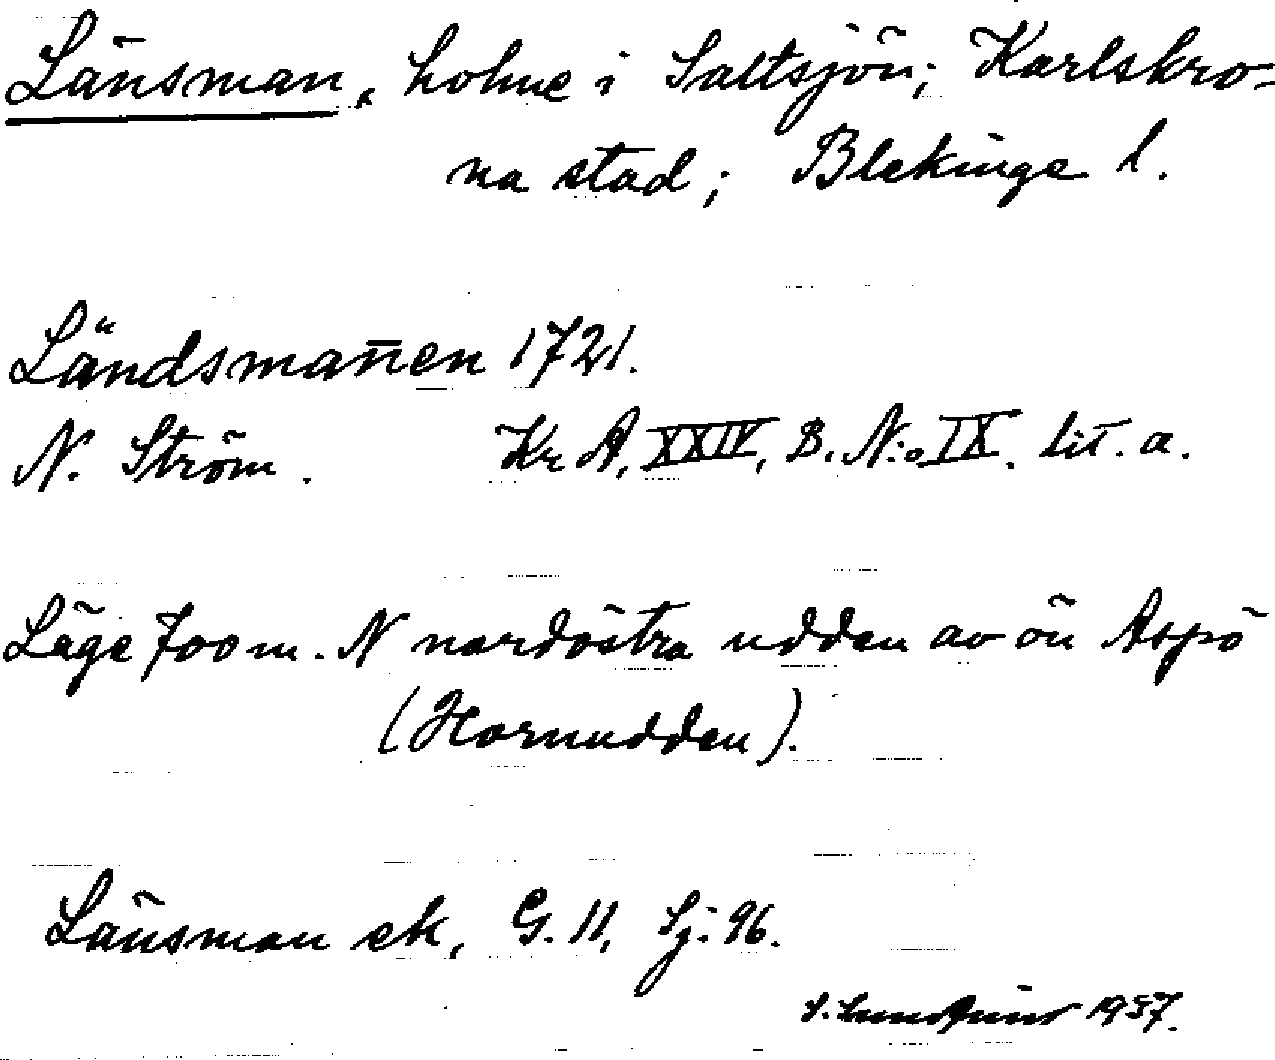 Länsman, holme i Saltsjön; Karlskro-
na stad; Blekinge l.
Ländsman̄en 1721.
N. Ström. Kr A, XXIV, B. N:o IX. lit. a.
Läge 700 m. N nordöstra udden av ön Aspö
(Hornudden).
Länsman ek, G. 11, Sj: 96.
S. Lundqvist 1937.